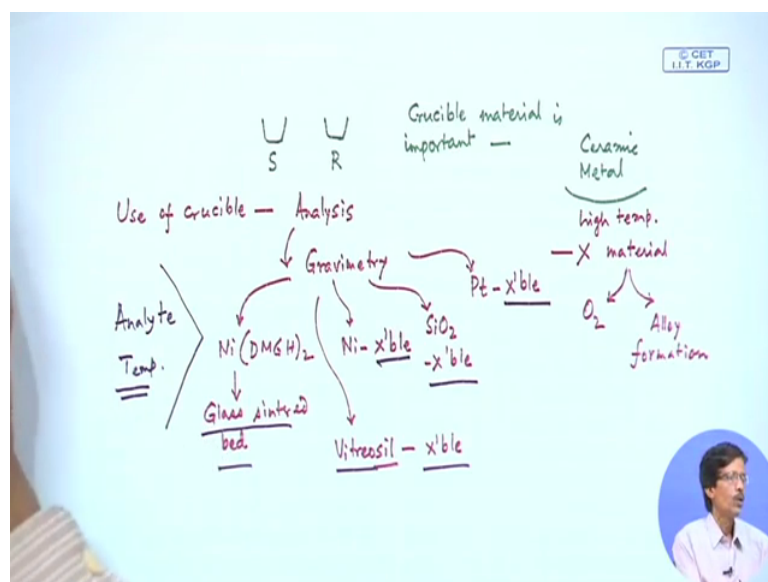 © CET
I.I.T. KGP
S R
Crucible material is
important —
Ceramic
Metal
high temp.
— X material
O₂
Alloy
formation
Use of crucible — Analysis
Gravimetry
Pt - x'ble
Analyte
Temp.
Ni(DMGH)₂
Ni - x'ble
SiO₂
- x'ble
Glass sintered
bed
Vitreosil - x'ble